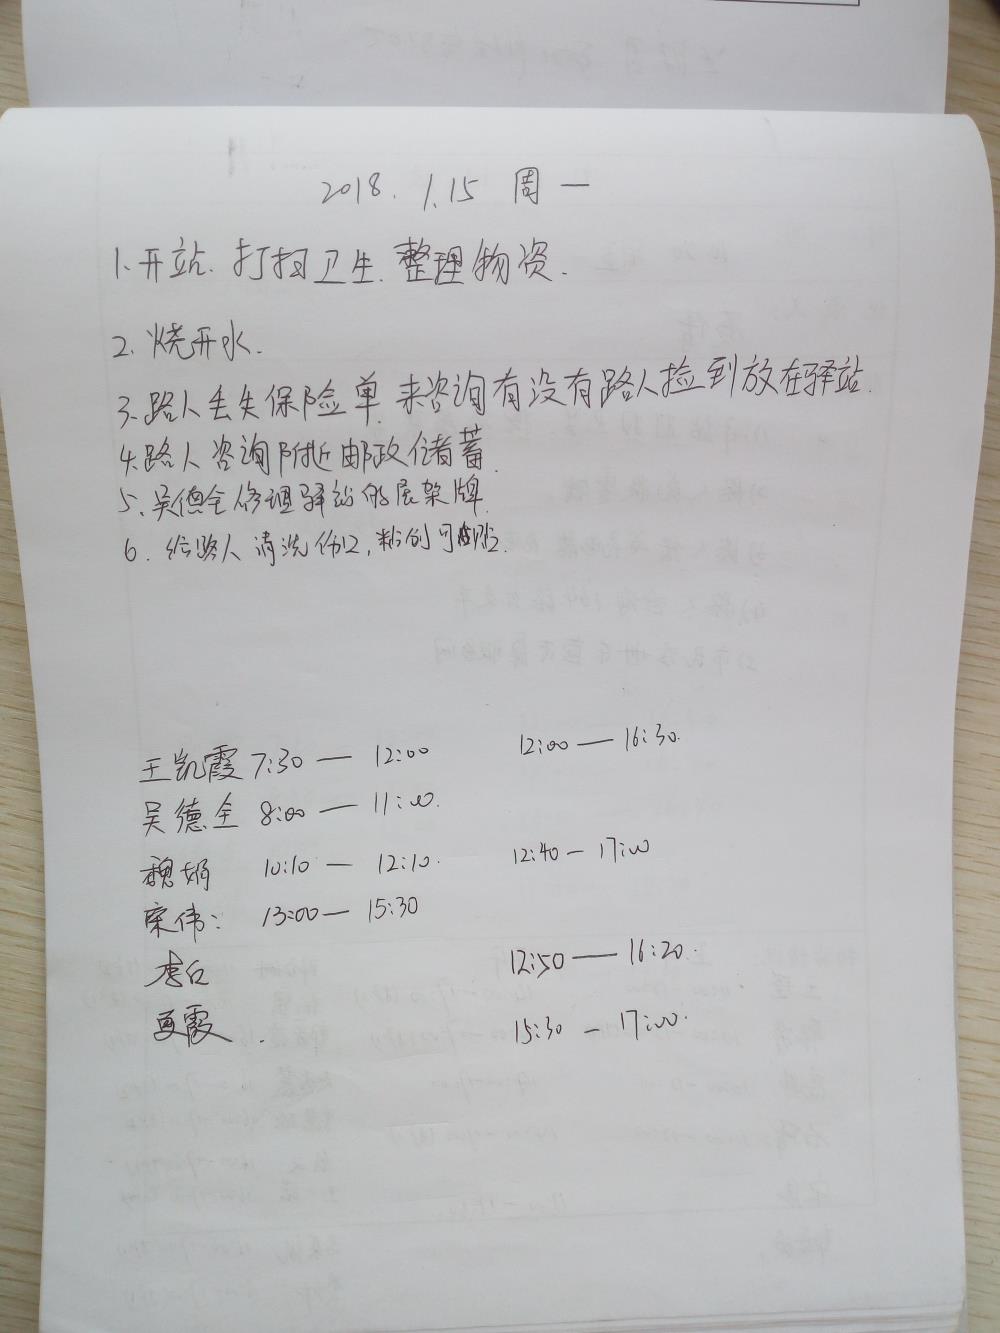 2018. 1.15 周一
1.开站.打扫卫生.整理物资.
2.烧开水.
3.路人丢失保险单.来咨询有没有路人捡到放在驿站.
4.路人咨询附近邮政储蓄.
5.吴德全修理驿站的展架牌.
6.给路人清洗伤口,粘创可贴.
王凯霞 7:30 — 12:00 12:00 — 16:30.
吴德全 8:00 — 11:00.
魏娟 10:10 — 12:10. 12:40 - 17:00
宋伟: 13:00 — 15:30
李白 12:50 — 16:20.
夏霞. 15:30 - 17:00.